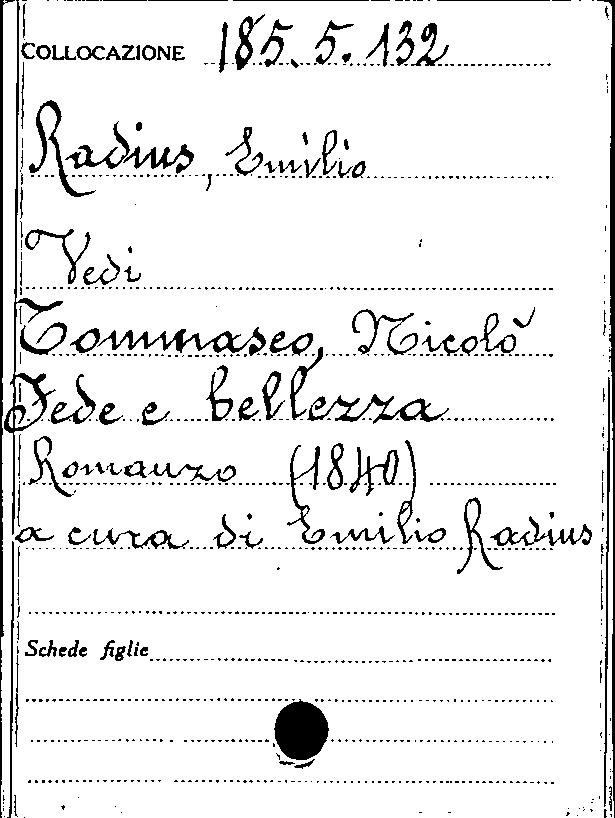 COLLOCAZIONE 185.5.132
Radius, Emilio
Vedi
Tommaseo, Nicolò
Fede e bellezza
Romanzo (1840)
a cura di Emilio Radius
Schede figlie